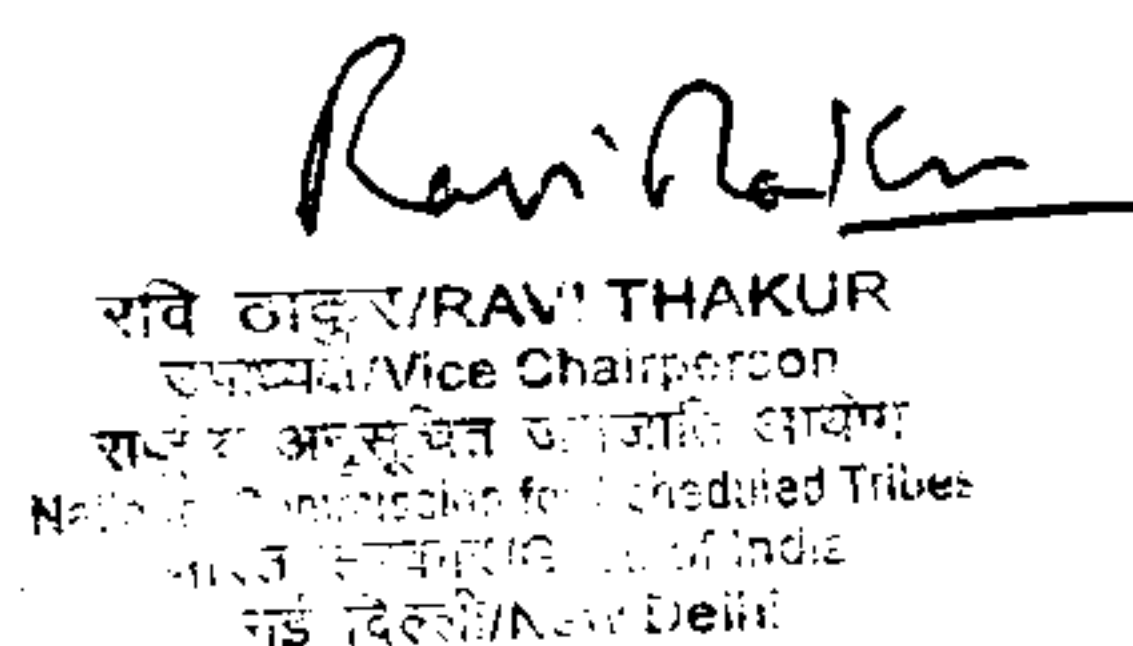 Ravi
रवि ठाकुर/RAVI THAKUR
उपाध्यक्ष/Vice Chairperson
राष्ट्रीय अनुसूचित जनजाति आयोग
National Commission for Scheduled Tribes
भारत सरकार/Govt. of India
नई दिल्ली/New Delhi